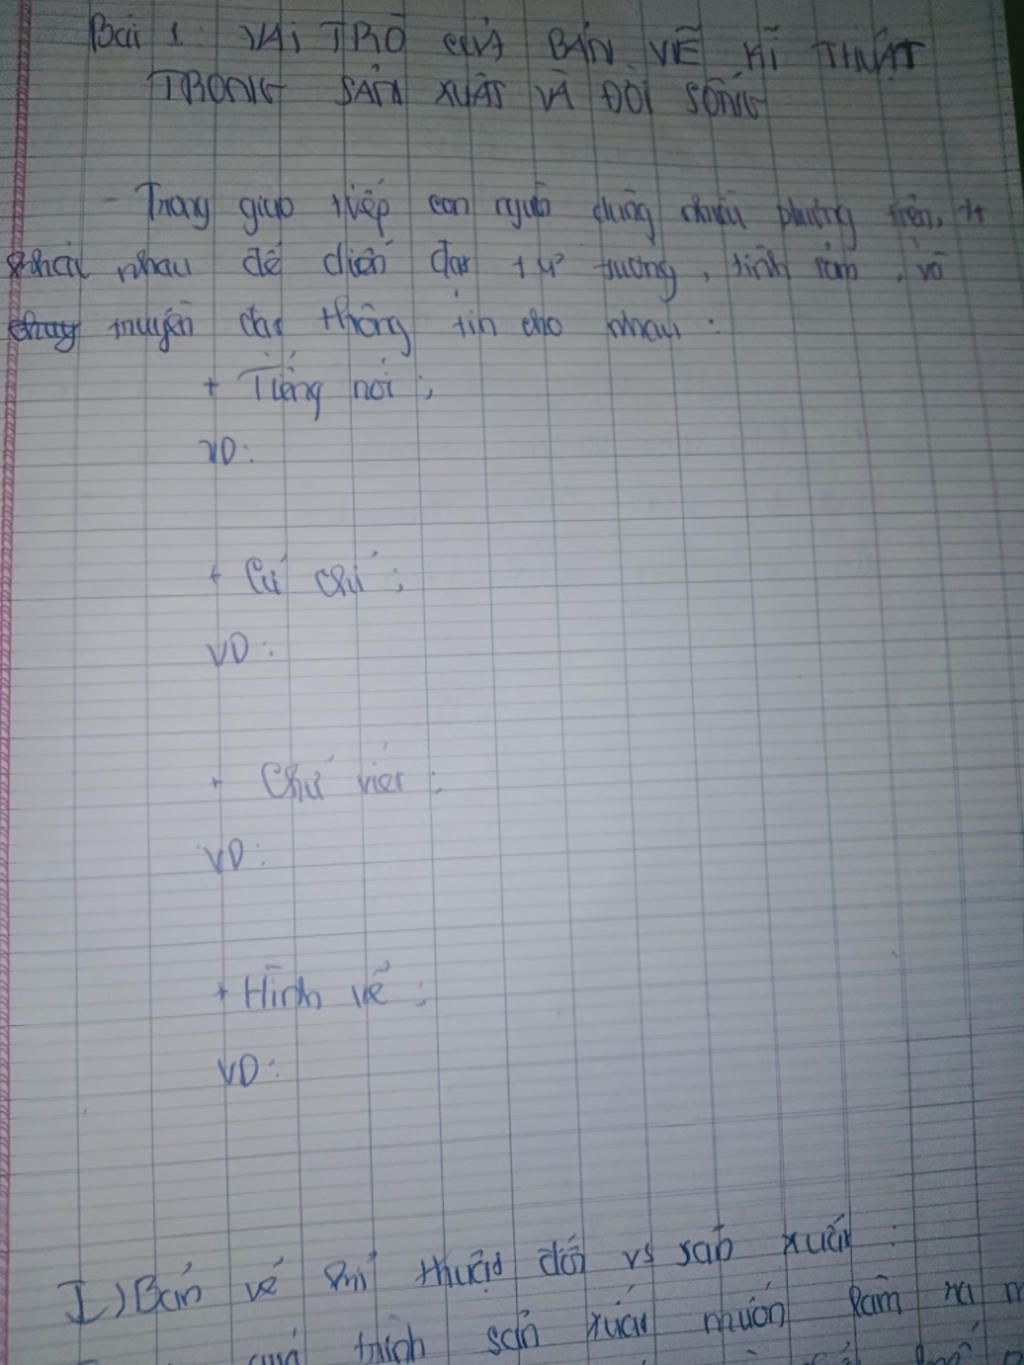 Bài 1: VAI TRÒ CỦA BẢN VẼ KĨ THUẬT
TRONG SẢN XUẤT VÀ ĐỜI SỐNG
- Trong giao tiếp con người dùng nhiều phương tiện
khác nhau để diễn đạt tư tưởng, tình cảm, và
truyền đạt thông tin cho nhau:
+ Tiếng nói:
VD:
+ Cử chỉ:
VD:
+ Chữ viết:
VD:
+ Hình vẽ:
VD:
I) Bản vẽ kĩ thuật đối vs sản xuất:
quá trình sản xuất muốn làm ra